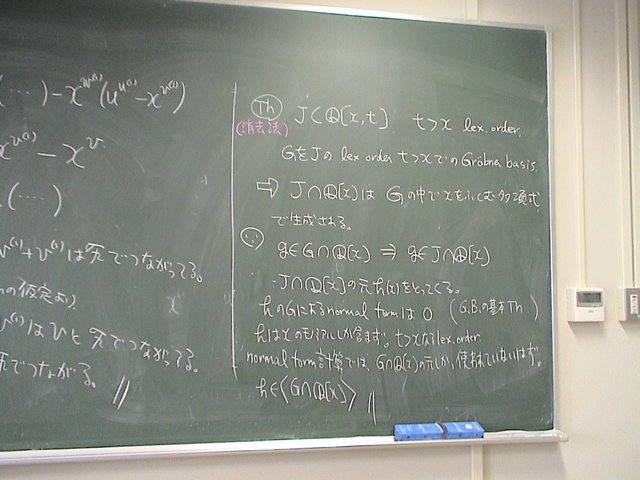 (…) - x^{v^{(i)}}(u^{u^{(i)}} - x^{v^{(i)}})
x^{v^{(i)}} - x^v
(…)
v^{(i)} + v^{(i)} は 死でつながってる。
の仮定より)
x
v^{(i)} は v と 死でつながってる。
でつながる。 //
Th J⊂Q[x,t] t>x lex. order.
(消去法)
GをJの lex order t>x での Gröbna basis.
⇨ J∩Q[x]は Gの中でxをふくむ多項式
で生成される。
∵ g∈G∩Q[x] ⇒ g∈J∩Q[x]
J∩Q[x]の元h(x)をとってくる。
hのGによるnormal formは 0 (G.B.の基本Th)
hはxのモノミアルしか含まず。t>xなるlex.order
normal form計算では、G∩Q[x]の元しか、使われていないはず。
h∈⟨G∩Q[x]⟩ //